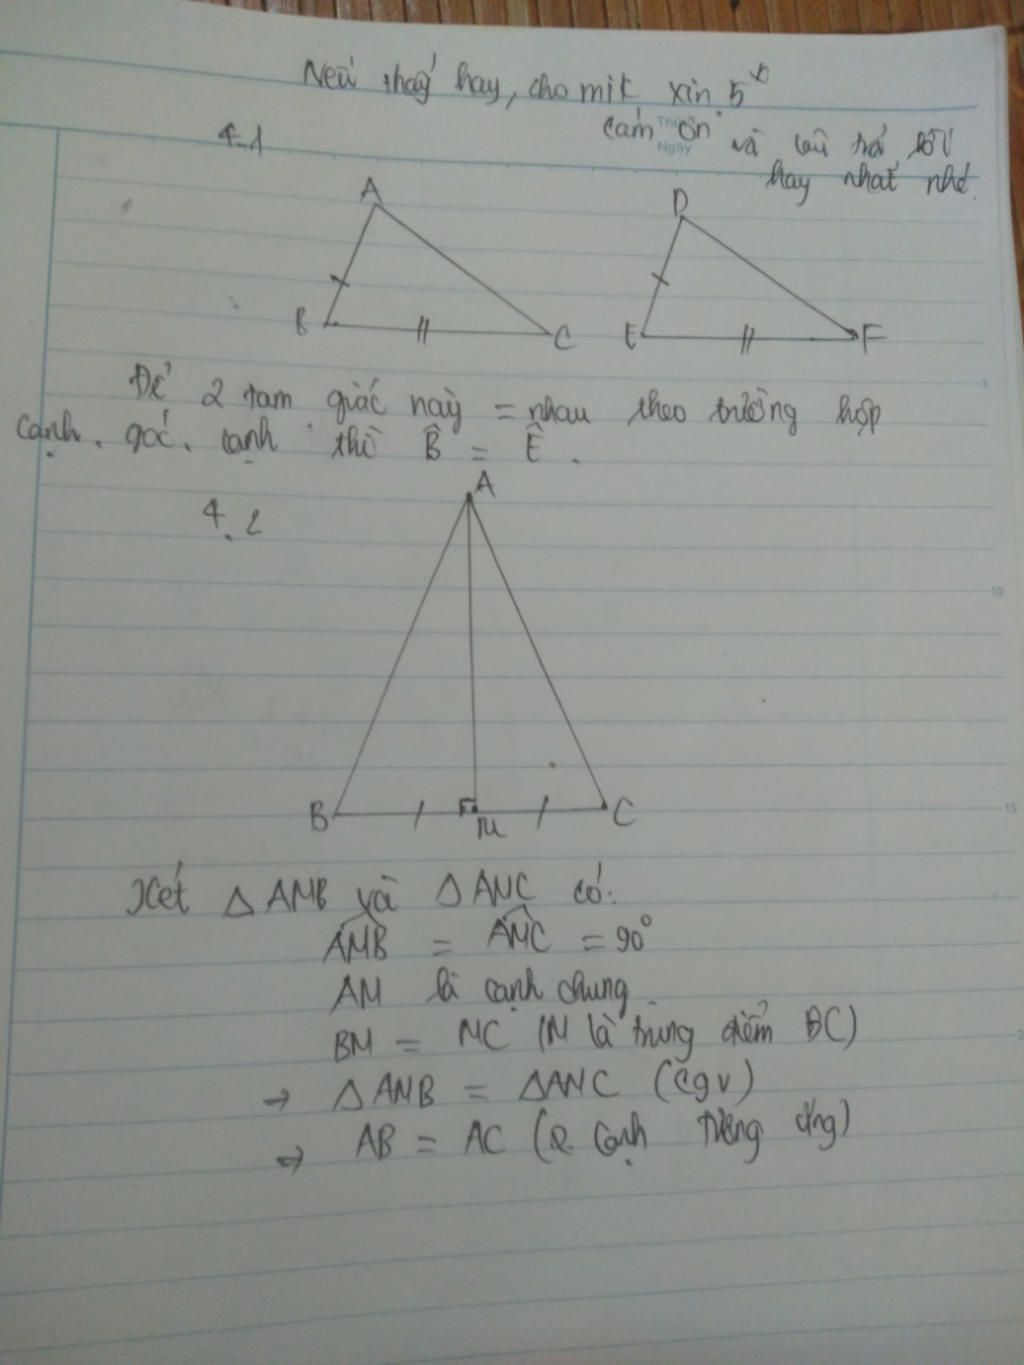 Nếu thấy hay, cho mik xin 5*
cảm ơn và câu trả lời
hay nhất nhé.
Thứ
Ngày
4.1
A
D
B
C
E
F
5
Để 2 tam giác này = nhau theo trường hợp
cạnh. góc. cạnh thì B̂ = Ê.
A
4.2
10
B
M
C
15
Xét △ AMB và △ AMC có:
AMB = AMC = 90°
AM là cạnh chung
BM = MC (M là trung điểm BC)
→ △ AMB = △AMC (cgv)
→ AB = AC (2 cạnh tương ứng)